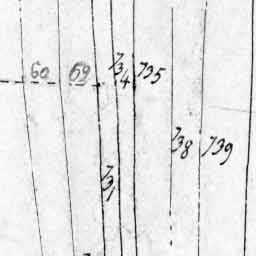 60
69
734
735
738
739
731